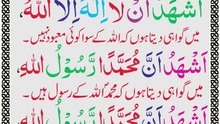 اَشْهَدُ اَنْ لَّا اِلٰهَ اِلَّا اللّٰهُ،
میں گواہی دیتا ہوں کہ اللہ کے سوا کوئی معبود نہیں۔
اَشْهَدُ اَنَّ مُحَمَّدًا رَّسُوْلُ اللّٰهِ،
میں گواہی دیتا ہوں کہ محمد اللہ کے رسول ہیں۔
اَشْهَدُ اَنَّ مُحَمَّدًا رَّسُوْلُ اللّٰهِ،